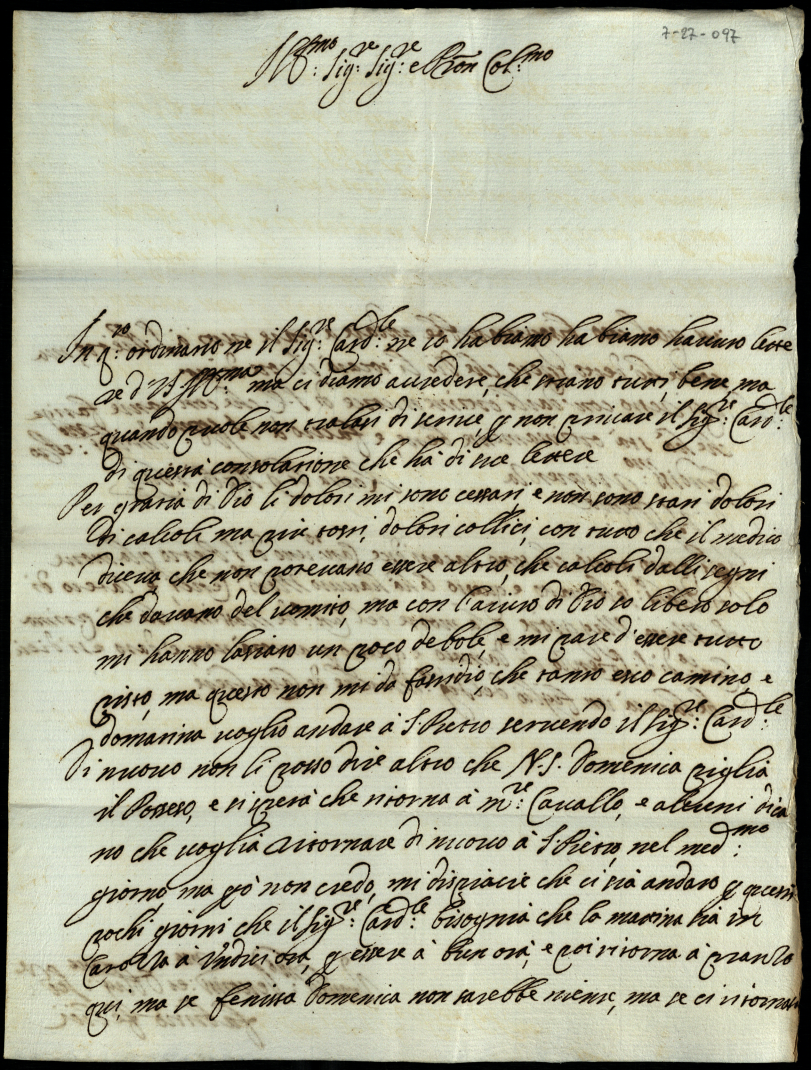 7-27-097
Ill:mo Sig:re Sig:re e Pron Col:mo
In q:to ordinario ne il Sig:re Card:le ne io habiamo habiamo havuto lette
re d VS Ill:ma ma ci diamo accredere, che stiano tutti bene, ma
quando puole non tralasi di scrive, p non privare il Sig:re Card:le
di questa consolatione che hà di sue lettere
Per gratia di Dio li dolori mi sono cessati e non sono stati dolori
di calcoli ma più tosti, dolori collici, con tutto che il medico
diceva che non potevano essere altro, che calcoli dalli segni
che davano del vomito, ma con l'aiuto di Dio so libero solo
mi hanno lassato un poco debole, e mi pare d'essere tutto
pisto, ma questo non mi da fastidio, che tanto esco camino, e
domatina voglio andare à S Pietro servendo il Sig:re Card:le
Di nuovo non li posso dire altro che N.S. Domenica piglia
il Posseso, e si spera che ritorna à m:te Cavallo, e alcuni dica
no che voglia ritornare di nuovo à S Pietro, nel med:mo
giorno ma io non credo, mi dispiacie che ci sia andato p questi
pochi giorni che il Sig:re Card:le bisognia che la matina sia in
Carozza à Vndici ora, p essere à bun orà, e poi ritorna à pranzo
qui, ma se fenissa Domenica non sarebbe niente, ma se ci ritorna